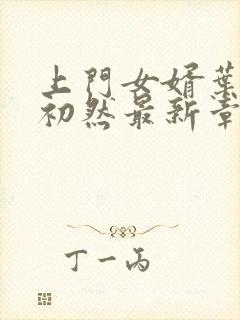 上門女婿葉
初然最新章
丁一丙